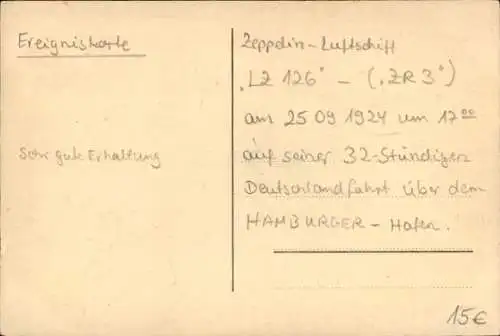 Ereigniskarte
Sehr gute Erhaltung
Zeppelin-Luftschiff
"LZ 126" - ("ZR 3")
am 25 09 1924 um 17⁰⁰
auf seiner 32-Stündigen
Deutschlandfahrt über dem
HAMBURGER - Hafen.
15€